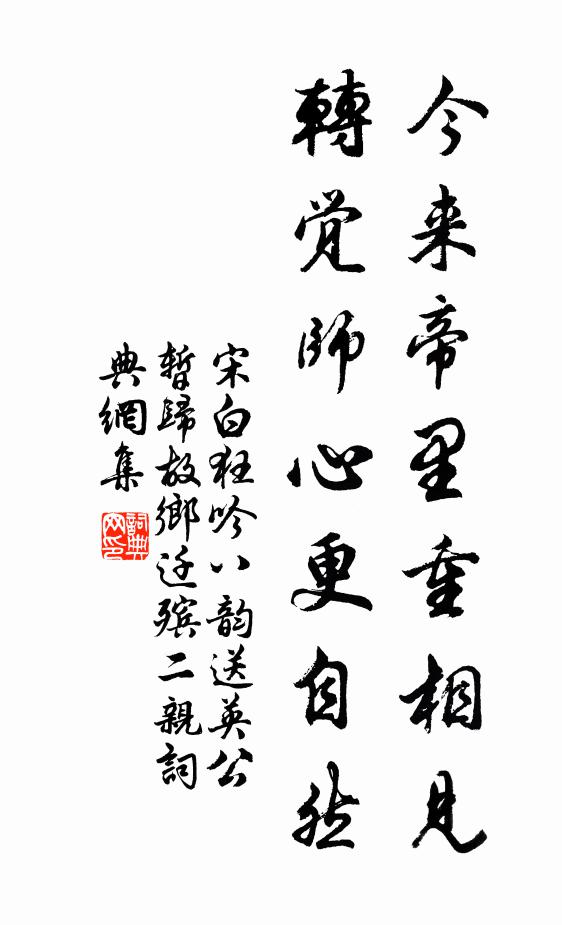 今来帝里重相見
轉覺師心更自然
宋白狂吟八韵送英公
暫歸故鄉迁殯二親詞
典網集
詞典網印